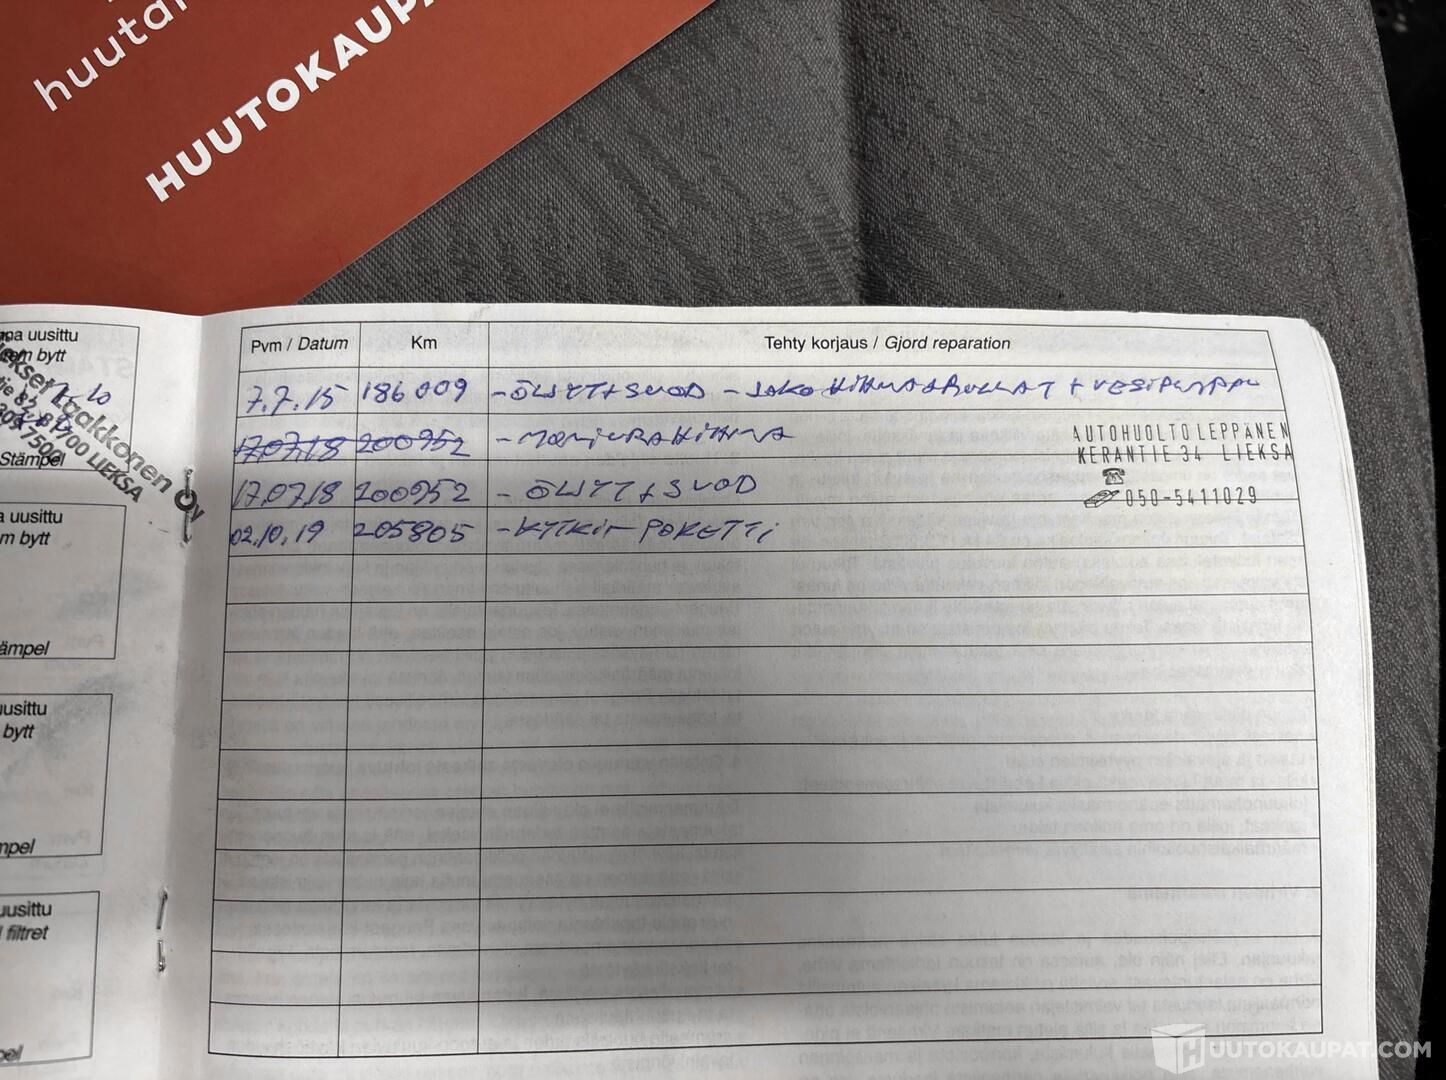 huutar
HUUTOKAUPA
na uusittu
m bytt
Laakkonen Oy
81700 LIEKSA
Stämpel
a uusittu
m bytt
ämpel
uusittu
bytt
mpel
uusittu
l filtret
pel
Pvm / Datum Km Tehty korjaus / Gjord reparation
7.7.15 186009 - ÖLJYT+SUOD - JAKOHIHNA+RULLAT + VESIPUMPPU
17.07.18 200952 - MONIURAHIHNA
17.07.18 200952 - ÖLJYT + SUOD
02.10.19 205805 - KYTKIN PAKETTI
AUTOHUOLTO LEPPÄNEN
KERANTIE 34 LIEKSA
050-5411029
HUUTOKAUPAT.COM